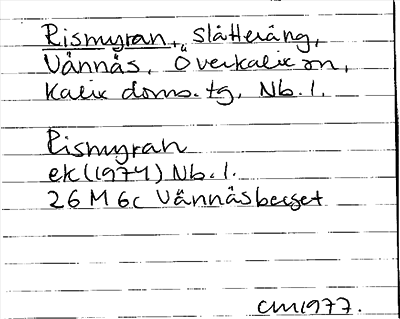 Rismyran, slåtteräng,
Vännäs, Överkalix sn,
Kalix doms. tg, Nb. l.
Rismyran
ek (1974) Nb. l.
26 M 6c Vännäsberget
CM 1977.